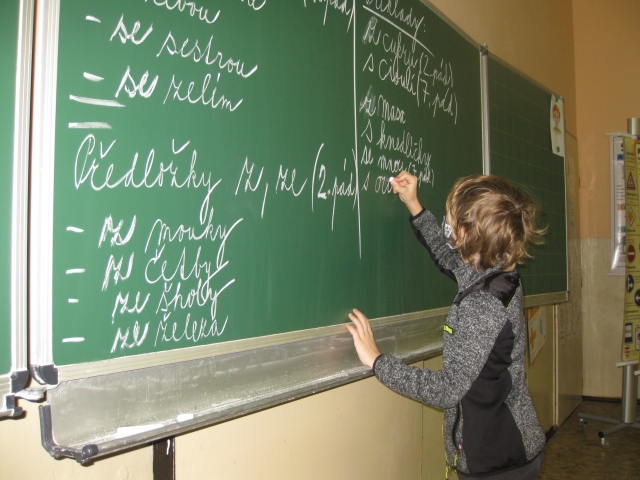 - se sestrou
- se zelím
Předložky z, ze (2. pád)
- ze mouky
- ze četby
- ze školy
- ze železa
z cukru (2. pád)
s cibulí (7. pád)
ze masa
s knedlíčky
se mnou